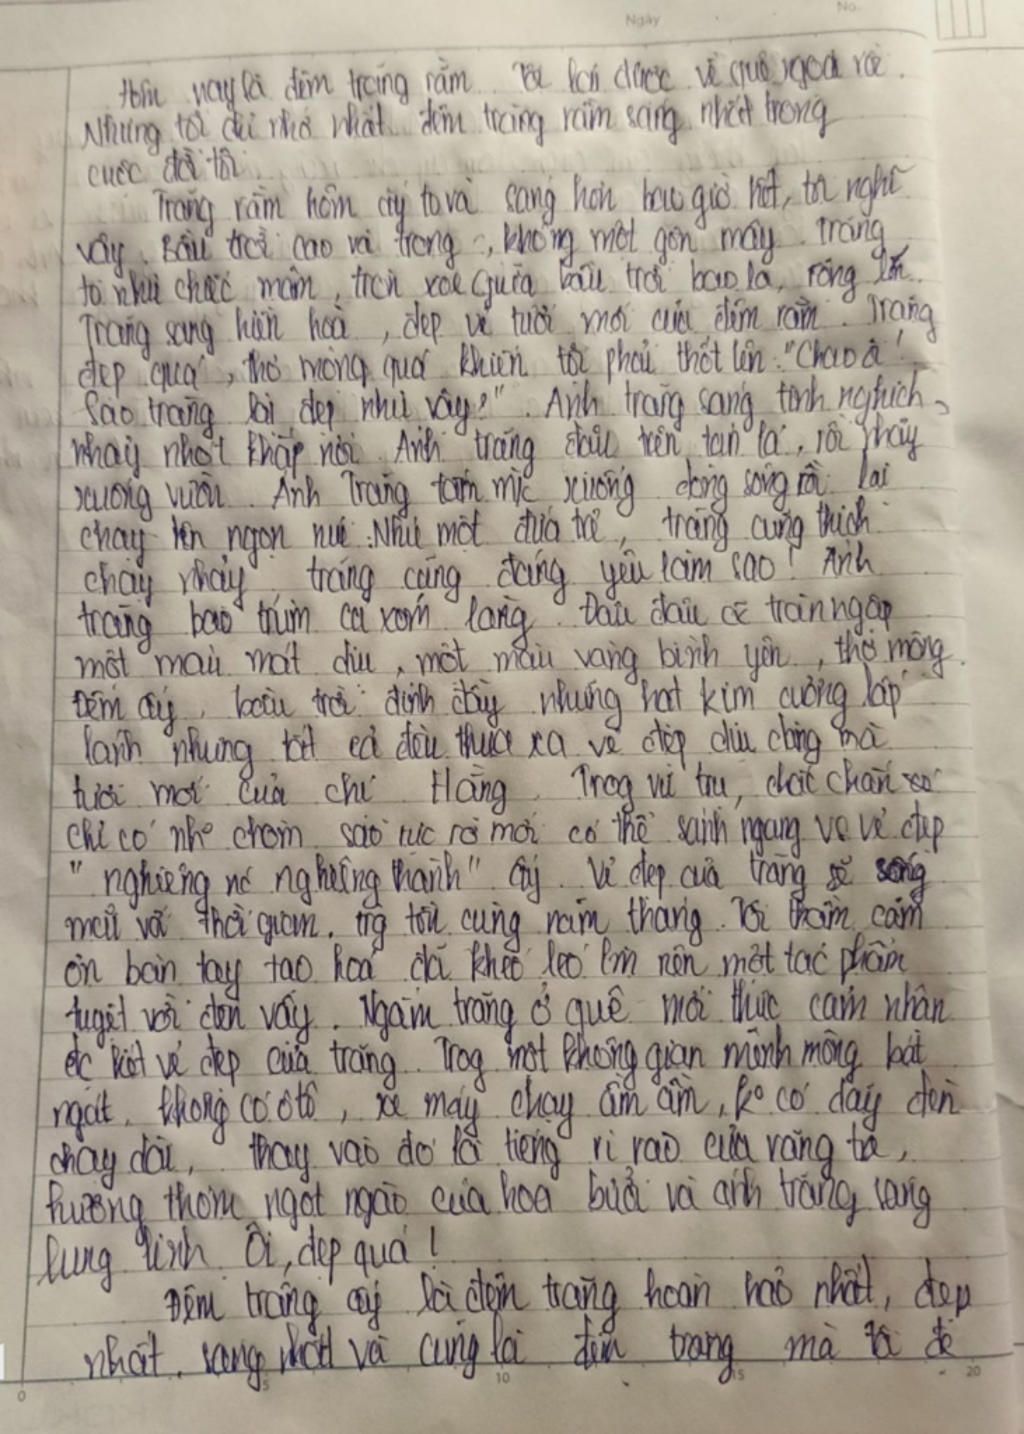 Ngày
No.
Hôm nay là đêm trăng rằm. Tôi lại được về quê ngoại rồi.
Nhưng tôi chỉ nhớ nhất đêm trăng rằm sáng nhất trong
cuộc đời tôi.
Trăng rằm hôm ấy to và sáng hơn bao giờ hết, tôi nghĩ
vậy. Bầu trời cao và trong, không một gợn mây. Trăng
to như chiếc mâm, tròn xoe giữa bầu trời bao la, rộng lớn.
Trăng sáng hiền hoà, đẹp vẻ tươi mới của đêm rằm. Trăng
đẹp quá, thơ mộng quá khiến tôi phải thốt lên: "Chao ôi!
Sao trăng lại đẹp như vậy?". Ánh trăng sáng tinh nghịch,
nhảy nhót khắp nơi. Ánh trăng đậu trên tán lá, rồi nhảy
xuống vườn. Ánh Trăng tắm mình xuống dòng sông rồi lại
chạy lên ngọn núi. Như một đứa trẻ, trăng cũng thích
chạy nhảy, trăng cũng đáng yêu làm sao! Ánh
trăng bao trùm cả xóm làng. Đâu đâu cũng tràn ngập
một màu mát dịu, một màu vàng bình yên, thơ mộng.
Đêm ấy, bầu trời đính đầy những hạt kim cương lấp
lánh nhưng tất cả đều thua xa vẻ đẹp dịu dàng mà
tươi mới của chị Hằng. Trog vũ trụ, chắc chắn
chỉ có chòm sao rực rỡ mới có thể sánh ngang với vẻ đẹp
"nghiêng nc nghiêng thành" ấy. Vẻ đẹp của trăng sẽ sống
mãi với thời gian, trg tôi cùng năm tháng. Tôi thầm cảm
ơn bàn tay tạo hoá đã khéo léo làm nên một tác phẩm
tuyệt vời đến vậy. Ngắm trăng ở quê mới thực cảm nhận
đc hết vẻ đẹp của trăng. Trog một không gian mênh mông bát
ngát, không có ôtô, xe máy chạy ầm ầm, ko có dãy đèn
chạy dài, thay vào đó là tiếng rì rào của rặng tre,
hương thơm ngọt ngào của hoa bưởi và ánh trăng sáng
lung linh. Ôi, đẹp quá!
Đêm trăng ấy là đêm trăng hoàn hảo nhất, đẹp
nhất, sáng nhất và cũng là đêm trăng mà tôi để
0 5 10 15 20